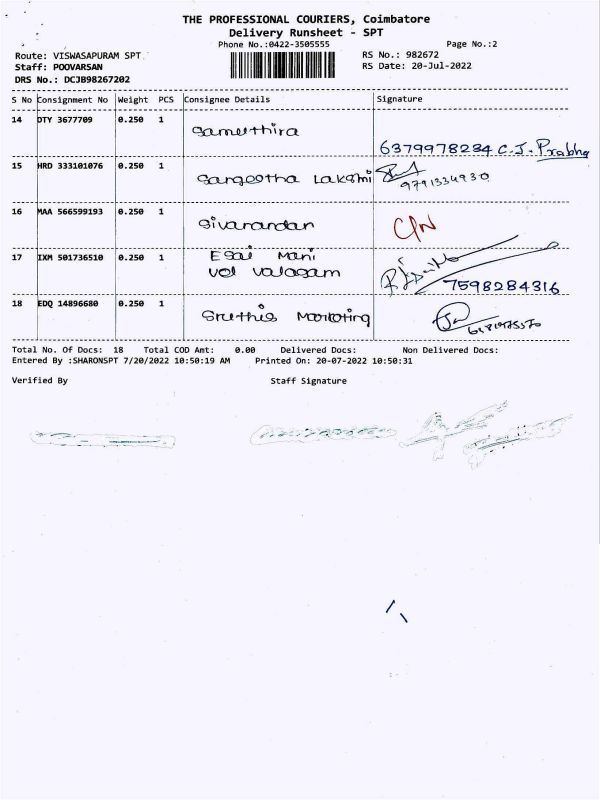 THE PROFESSIONAL COURIERS, Coimbatore
Delivery Runsheet - SPT
Phone No.:0422-3505555 Page No.:2
Route: VISWASAPURAM SPT RS No.: 982672
Staff: POOVARSAN RS Date: 20-Jul-2022
DRS No.: DCJB98267202
S No Consignment No Weight PCS Consignee Details Signature
14 DTY 3677709 0.250 1 Sameethira 6379978234 C.J. Prabha
15 HRD 333101076 0.250 1 Sangeetha Lakshmi 9791334930
16 MAA 566599193 0.250 1 Sivanandan C/N
17 IXM 501736510 0.250 1 Esai Mani
Vel Valagam 7598284316
18 EDQ 14896680 0.250 1 Sruthis Marketing
Total No. Of Docs: 18 Total COD Amt: 0.00 Delivered Docs: Non Delivered Docs:
Entered By :SHARONSPT 7/20/2022 10:50:19 AM Printed On: 20-07-2022 10:50:31
Verified By Staff Signature